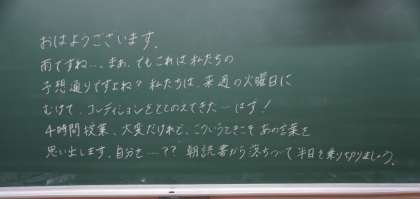 おはようございます。
雨ですね…。まあ、でもこれは私たちの
予想通りですよね？私たちは、来週の火曜日に
むけて、コンディションをととのえてきた…はず！
4時間授業、大変だけれど、こういうときこそあの言葉を
思い出します。自分を…？？ 朝読書から落ちついて半日を乗り切りましょう。